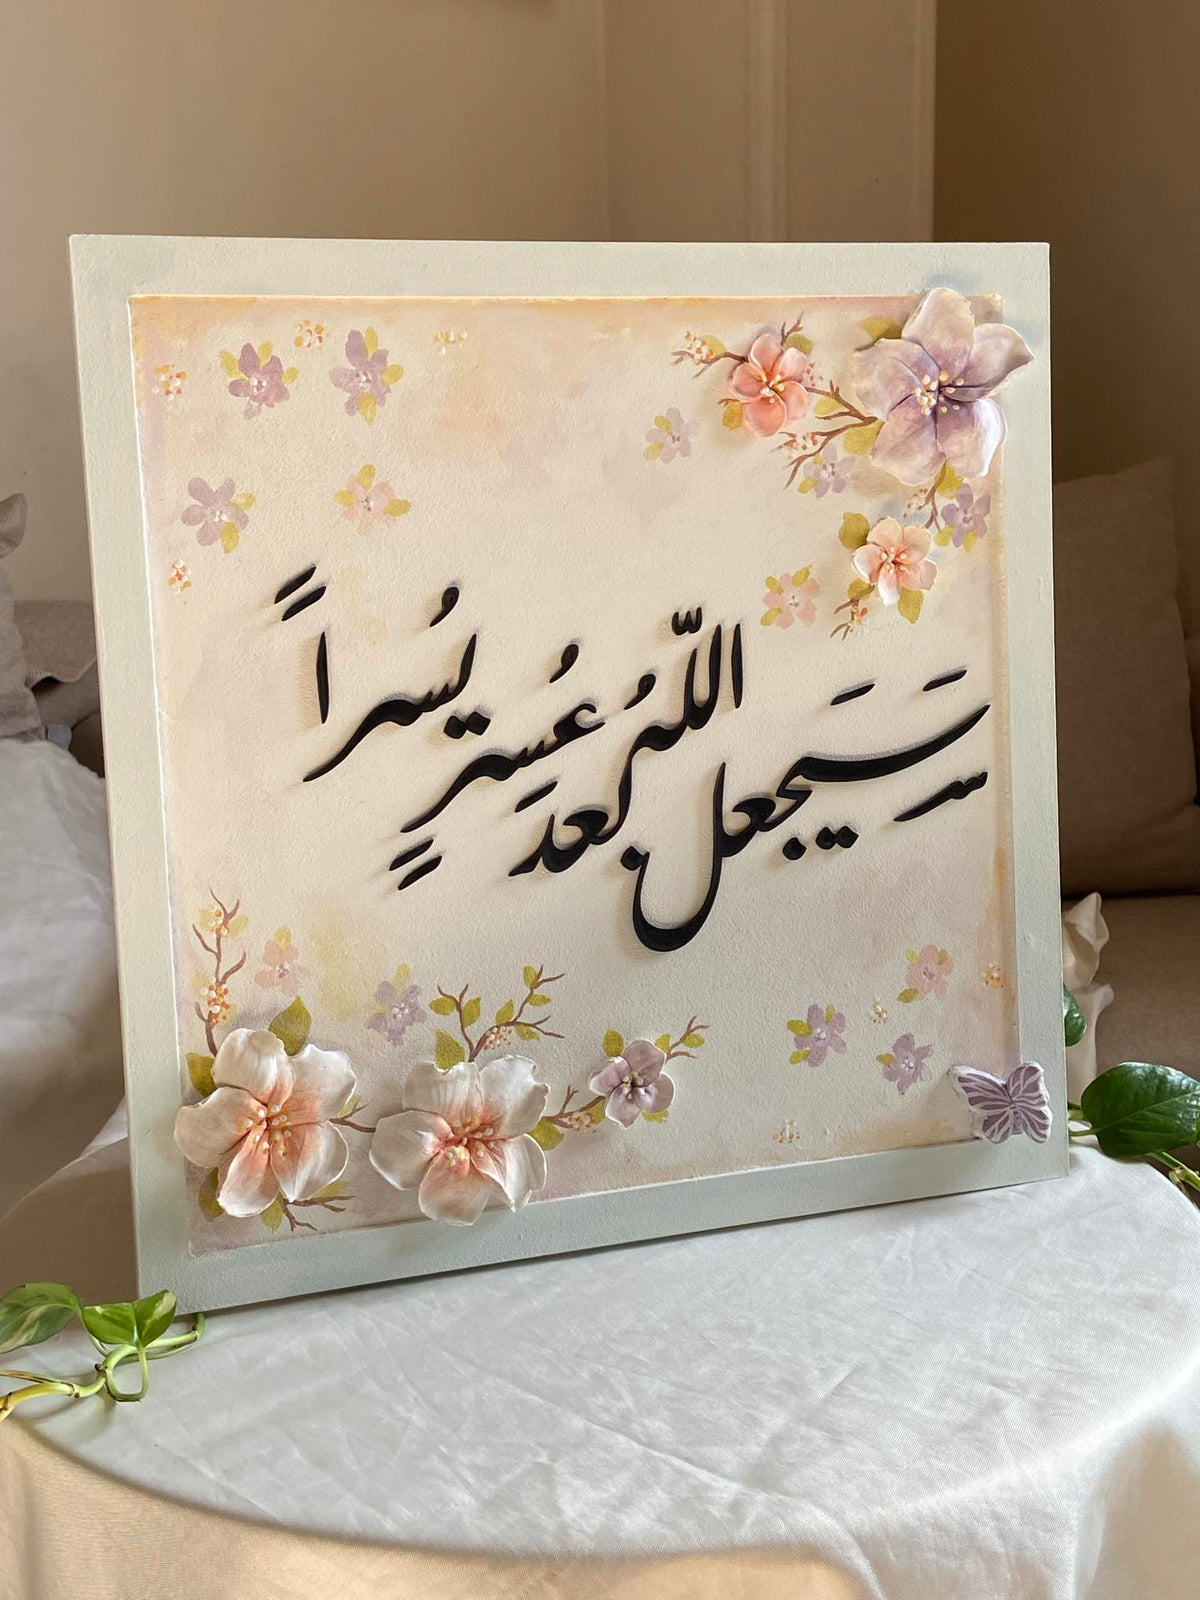 سَيَجعل اللّهُ بعدَ عُسرٍ يُسراً